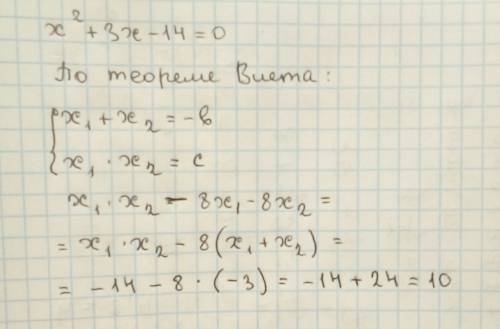 x² + 3x - 14 = 0
По теореме Виета:
{ x₁ + x₂ = -b
x₁ · x₂ = c
x₁ · x₂ - 8x₁ - 8x₂ =
= x₁ · x₂ - 8(x₁ + x₂) =
= -14 - 8 · (-3) = -14 + 24 = 10